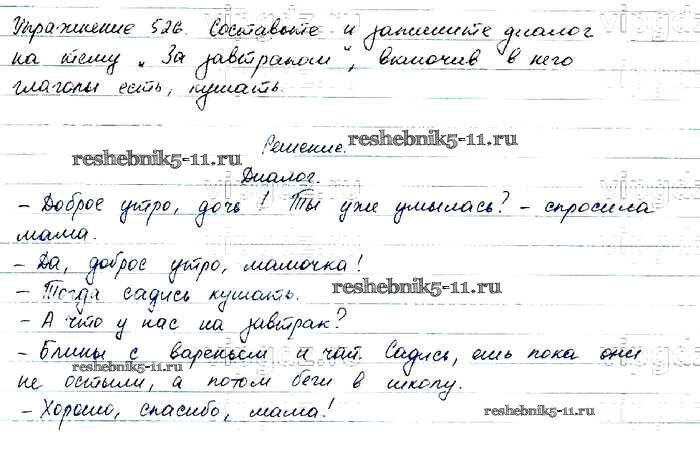 Упражнение 526. Составьте и запишите диалог
на тему „За завтраком“, включив в него
глаголы есть, кушать.
reshebnik5-11.ru
Решение.
reshebnik5-11.ru
Диалог.
- Доброе утро, дочь! Ты уже умылась? - спросила
мама.
- Да, доброе утро, мамочка!
- Тогда садись кушать.
reshebnik5-11.ru
- А что у нас на завтрак?
- Блины с вареньем и чай. Садись, ешь пока они
не остыли, а потом беги в школу.
- Хорошо, спасибо, мама!
reshebnik5-11.ru